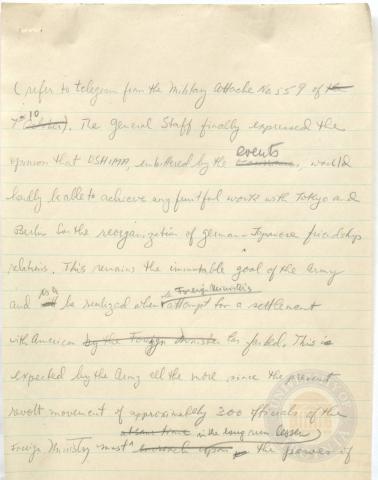 (refer to telegram from the Military Attache No. 559 of the
7th 10 October). The General Staff finally expressed the
opinion that OSHIMA, embittered by the events, would
hardly be able to achieve any fruitful work with Tokyo and
Berlin for the reorganization of German-Japanese friendship
relations. This remains the immutable goal of the Army
and will be realized when the Foreign Minister's attempt for a settlement
with American by the Foreign Minister has failed. This is
expected by the Army all the more since the present
revolt movement of approximately 300 officials of the
Foreign Ministry must in the long run lessen the power of